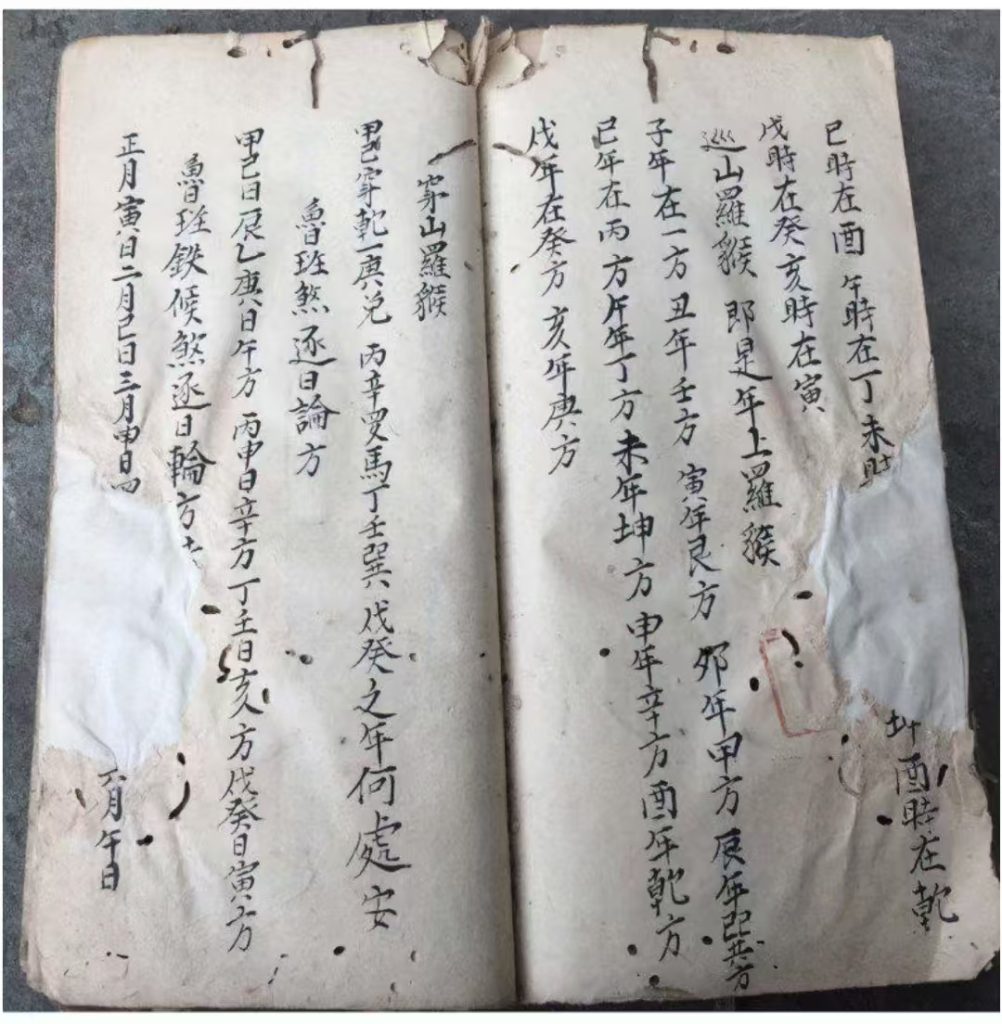 巳時在酉 午時在丁未時 坤 酉時在乾
戌時在癸亥時在寅
巡山羅猴 即是年上羅猴
子年在一方 丑年壬方 寅年艮方 夘年甲方 辰年巽方
巳年在丙方午年丁方未年坤方 申年辛方酉年乾方
戌年在癸方 亥年庚方
穿山羅猴
甲己穿乾一庚兑 丙辛受馬丁壬巽戊癸之年何處安
魯班煞逐日論方
甲己日辰乙庚日午方 丙申日辛方丁壬日亥方戊癸日寅方
魯班鉄候煞逐日輪方
正月寅日二月巳日三月申日四 六月午日